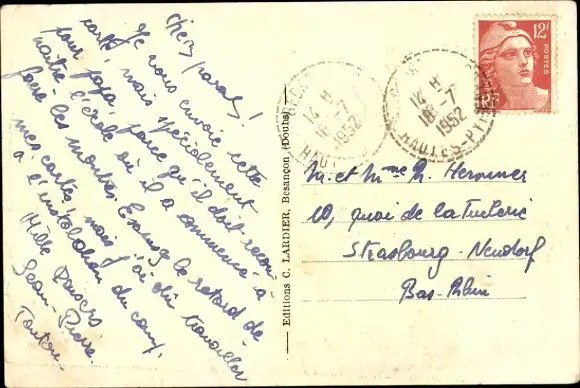 Chers parents!
Je vous envoie cette
carte, mais spécialement
pour papa, parce qu'il doit recon-
naître l'école où il a commencé à
faire les montres. Excusez le retard de
mes cartes, mais j'ai dû travailler
à l'installation du camp.
Mille baisers
Jean-Pierre
Editions C. LARDIER, Besançon, (Doubs)
14 H
18-7
1952
HAUT
14 H
18-7
1952
HAUTES-PYR
12F
POSTES
RF
M. et Mme M.
10, quai de la Tuilerie
Strasbourg-Neudorf
Bas-Rhin